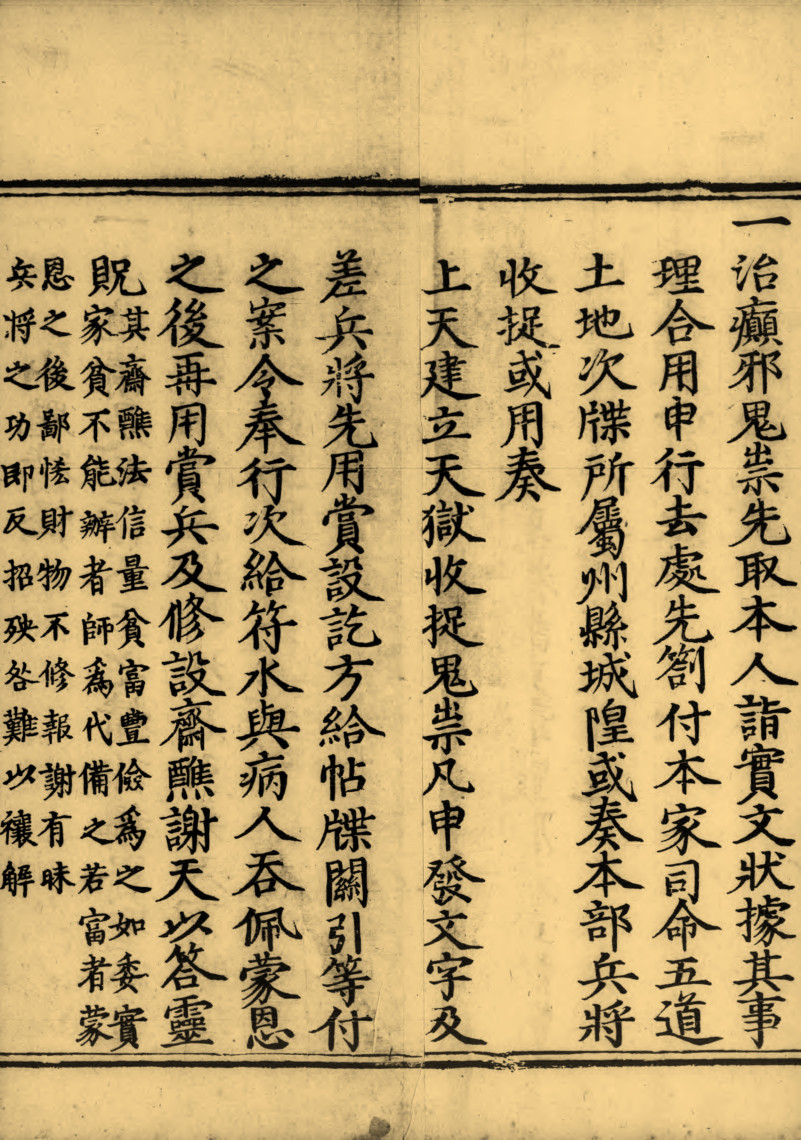 一治癲邪鬼祟先取本人詣實文狀據其事
理合用申行去處先劄付本家司命五道
土地次牒所屬州縣城隍或奏本部兵將
收捉或用奏
上天建立天獄收捉鬼祟凡申發文字及
差兵將先用賞設訖方給帖牒關引等付
之案令奉行次給符水與病人吞佩蒙恩
之後再用賞兵及修設齋醮謝天以答靈
貺其齋醮法信量貧富豐儉爲之如委實
家貧不能辦者師爲代備之若富者蒙
恩之後鄙恡財物不修報謝有昧
兵將之功即反招殃咎難以禳解